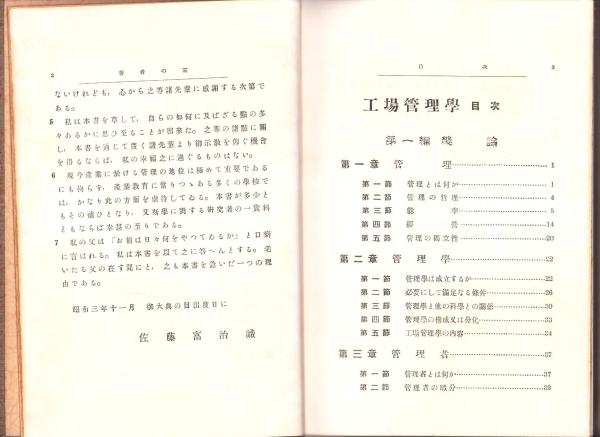 2 著者の言
ないけれども、心から之等諸先輩に感謝する次第で
ある。
5 私は本書を草して、自らの如何に及ばざる點の多
々あるかに思ひ至ることが出來た。之等の諸點に關
し、本書を通じて廣く諸先輩より御示教を仰ぐ機會
を得るならば、私の幸福之に過ぐるものはない。
6 現今產業に於ける管理の地位は極めて重要である
にも拘らず、產業教育に當りつゝある多くの學校で
は、かなり此の方面を虐待してゐる。本書が多少と
もその補ひとなり、又斯學に對する研究者の一資料
ともならば幸甚の至りである。
7 私の父は「お前は日々何をやつてゐるか」と口癖
に言はれる。私は本書を以て之に答へんとする。老
いたる父の在す間にと、之も本書を急いだ一つの理
由である。
昭和三年十一月 御大典の日出度日に
佐藤富治識
目次 3
工場管理學 目次
第一編 緒論
第一章 管理 1
第一節 管理とは何か 1
第二節 管理の哲理 4
第三節 能率 5
第四節 經營 14
第五節 管理の獨立性 20
第二章 管理學 22
第一節 管理學は成立するか 22
第二節 必要にして滿足なる條件 26
第三節 管理學と他の科學との關係 30
第四節 管理學の構成又は分化 33
第五節 工場管理學の內容 34
第三章 管理者 37
第一節 管理者とは何か 37
第二節 管理者の職分 39